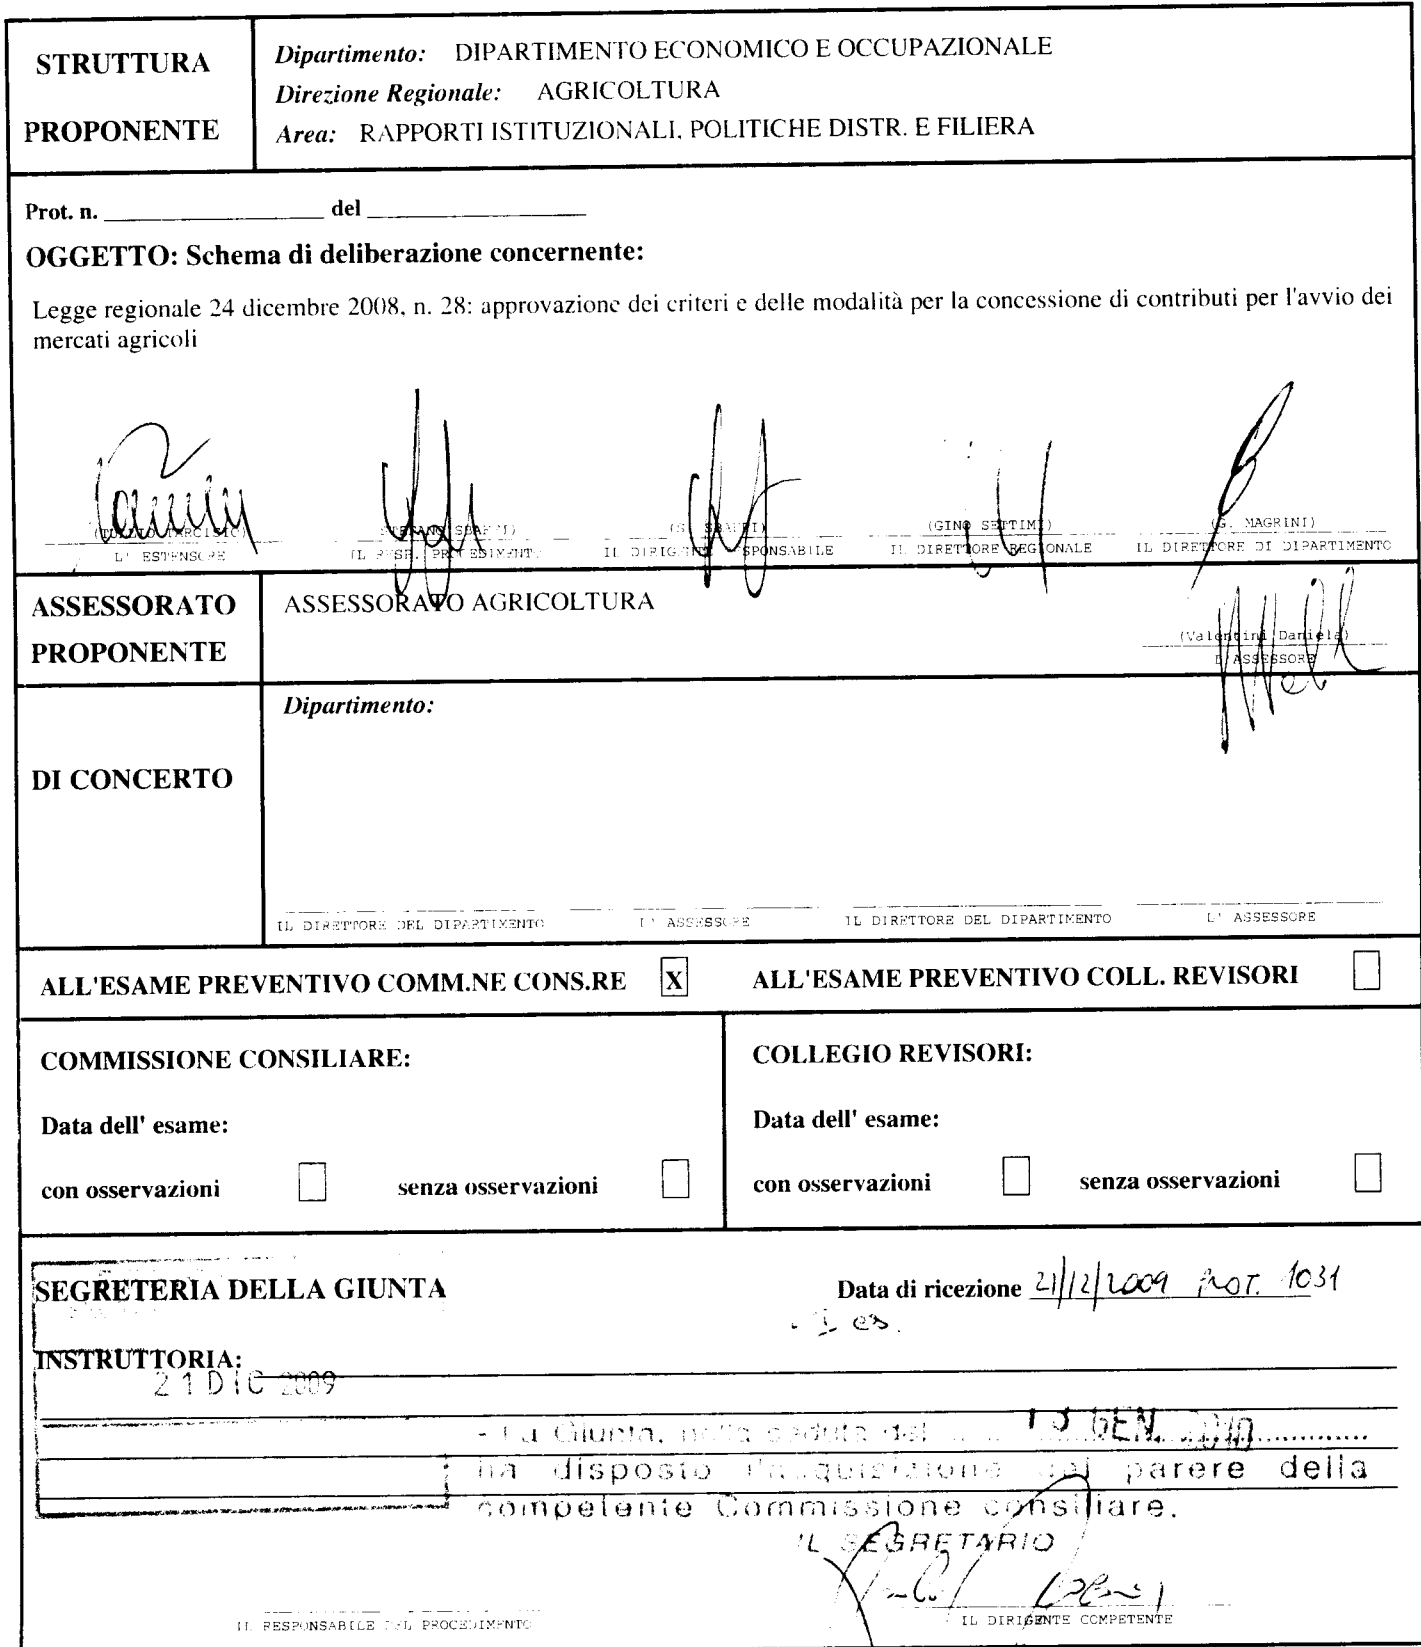 STRUTTURA
PROPONENTE
Dipartimento: DIPARTIMENTO ECONOMICO E OCCUPAZIONALE
Direzione Regionale: AGRICOLTURA
Area: RAPPORTI ISTITUZIONALI, POLITICHE DISTR. E FILIERA
Prot. n. del
OGGETTO: Schema di deliberazione concernente:
Legge regionale 24 dicembre 2008, n. 28: approvazione dei criteri e delle modalità per la concessione di contributi per l'avvio dei
mercati agricoli
(GINO SETTIMI) (G. MAGRINI)
L' ESTENSORE IL RESP. PROCEDIMENTO IL DIRIGENTE RESPONSABILE IL DIRETTORE REGIONALE IL DIRETTORE DI DIPARTIMENTO
ASSESSORATO
PROPONENTE
ASSESSORATO AGRICOLTURA
(Valentini Daniela)
L'ASSESSORE
DI CONCERTO
Dipartimento:
IL DIRETTORE DEL DIPARTIMENTO L' ASSESSORE IL DIRETTORE DEL DIPARTIMENTO L' ASSESSORE
ALL'ESAME PREVENTIVO COMM.NE CONS.RE X ALL'ESAME PREVENTIVO COLL. REVISORI
COMMISSIONE CONSILIARE:
Data dell' esame:
con osservazioni senza osservazioni
COLLEGIO REVISORI:
Data dell' esame:
con osservazioni senza osservazioni
SEGRETERIA DELLA GIUNTA
Data di ricezione 21/12/2009 PROT. 1031
INSTRUTTORIA:
21 DIC 2009
- La Giunta, nella seduta del GEN. 2010
ha disposto l'acquisizione del parere della
competente Commissione consiliare.
IL SEGRETARIO
IL RESPONSABILE DEL PROCEDIMENTO
IL DIRIGENTE COMPETENTE